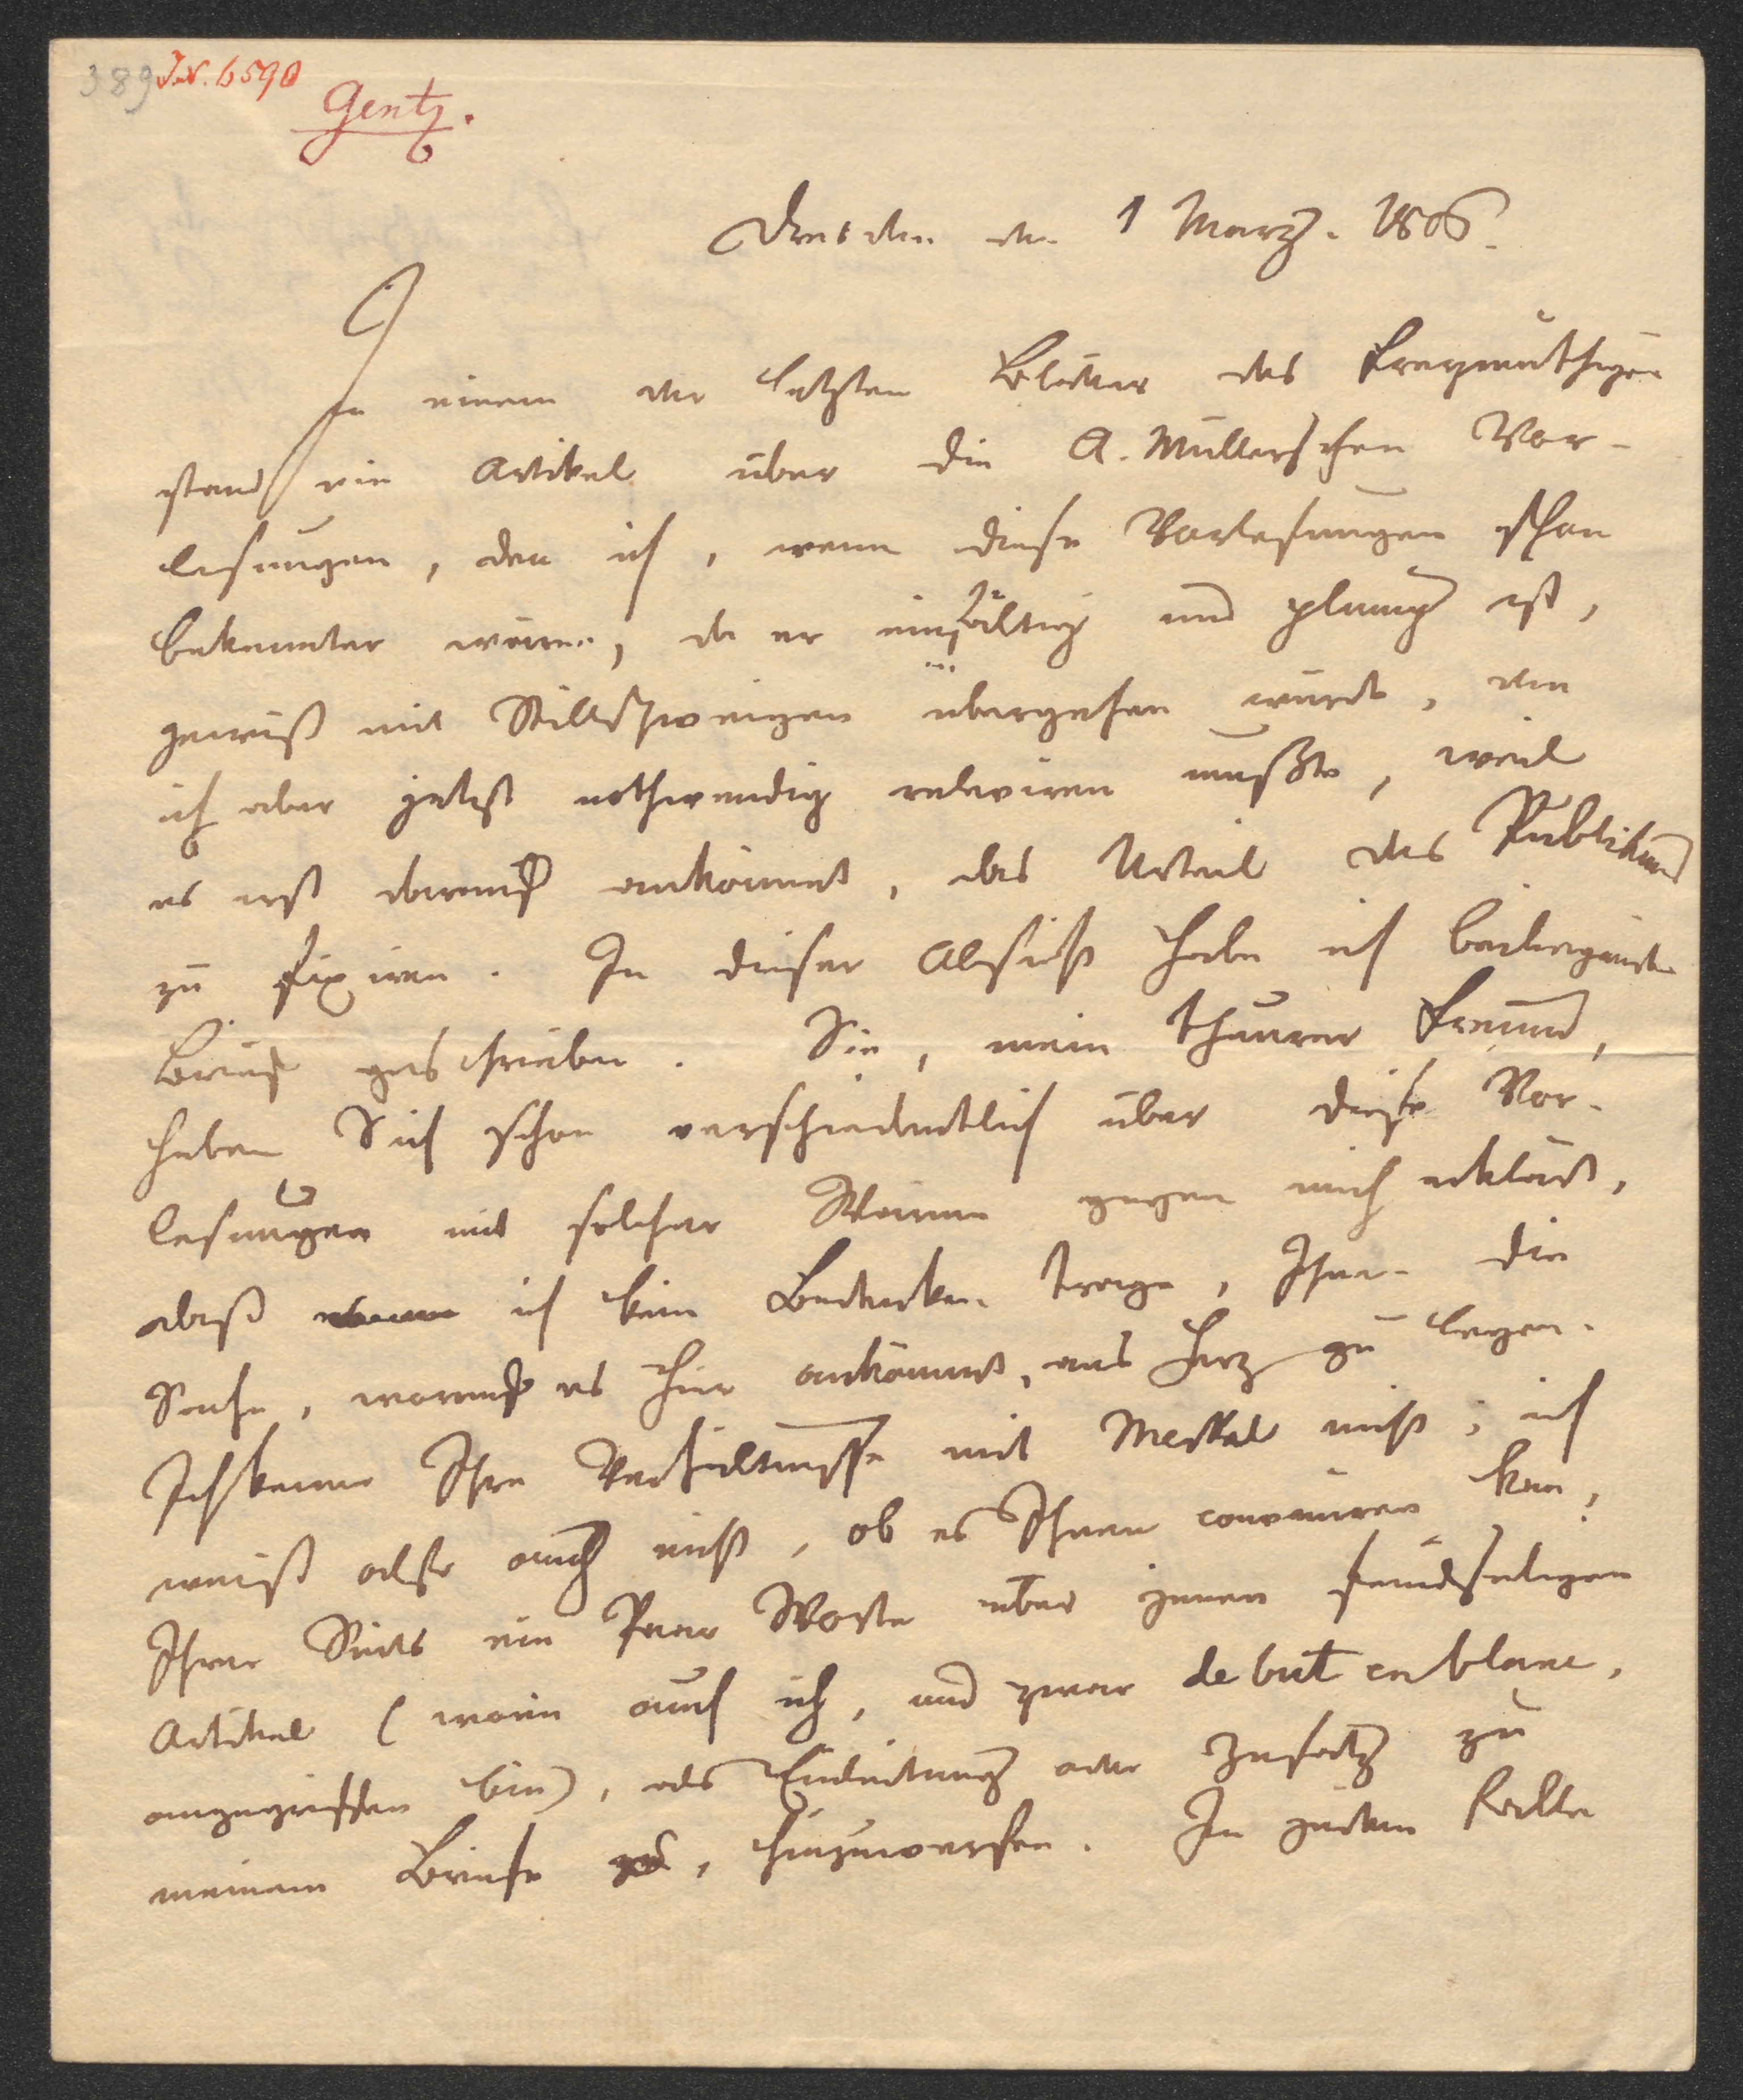 389 I.N. 6590
Gentz.
Dresden den 1 März. 1806.
In einem der letzten Blätter des Freymüthigen
stand ein Artikel über die A. Müllerschen Vor-
lesungen, den ich, wenn diese Vorlesungen schon
bekannter wären, da er einfältig und plump ist,
gewiß mit Stillschweigen übergehen würde, den
ich aber jetzt nothwendig releviren mußte, weil
es erst darauf ankömmt, das Urteil des Publikums
zu fixiren. In dieser Absicht habe ich beiliegenden
Brief geschrieben. Sie, mein theurer Freund,
haben Sich schon verschiedentlich über diese Vor-
lesungen mit solcher Wärme gegen mich erklärt,
daß ich kein Bedenken trage, Ihnen die
Sache, worauf es hier ankömmt, ans Herz zu legen.
Ich kenne Ihre Verhältnisse mit Merkel nicht; ich
weiß also auch nicht, ob es Ihnen conveniren kan,
Ihrer Seits ein Paar Worte über jenen feindseligen
Artikel (worin auch ich, und zwar de but en blanc,
angegriffen bin), als Einleitung oder Zusatz zu
meinem Briefe, hinzuwerfen. In jedem Falle